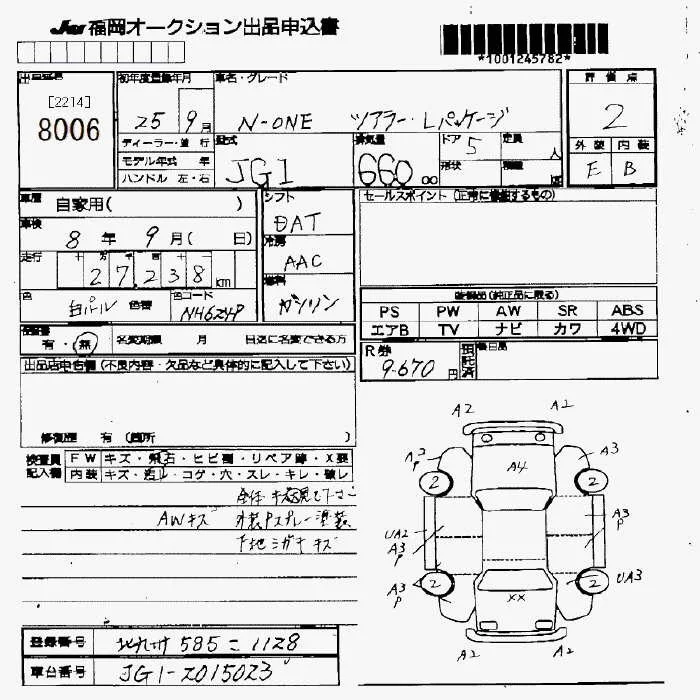 JU 福岡オークション出品申込書
*1001245782*
出品番号
[2214]
8006
初年度登録年月
25 9月
ディーラー・並行
モデル年式 年
ハンドル 左・右
車名・グレード
N-ONE ツアラー・Lパッケージ
型式
JG1
排気量
660 00
ドア 5
形状
定員 人
積載
評価点
2
外装 内装
E B
車歴 自家用( )
車検 8年 9月( 日)
走行 十 万 千 百 十
27,238 km
色 白パール 色替
色コード NH624P
シフト
DAT
冷房
AAC
燃料
ガソリン
セールスポイント (正常に機能するもの)
装備品(純正品に限る)
PS PW AW SR ABS
エアB TV ナビ カワ 4WD
有・無
名変期限 月 日迄に名変できる方
R券
9.670円
預託済
後日品
出品店申告欄(不良内容・欠品など具体的に記入して下さい)
修復歴 有(箇所 )
検査員記入欄
FW キズ・飛石・ヒビ割・リペア跡・X要
内装 キズ・汚レ・コゲ・穴・スレ・キレ・破レ
全体 キズ
AWキズ 外装Pスプレー塗装
下地ミガキキズ
A2 A2
A3 P
A3
A4
2 2
UA2
A3 P
A3 P
A3 P
2 2
UA3
XX
A2 A2
登録番号 585 1128
車台番号 JG1-2015023